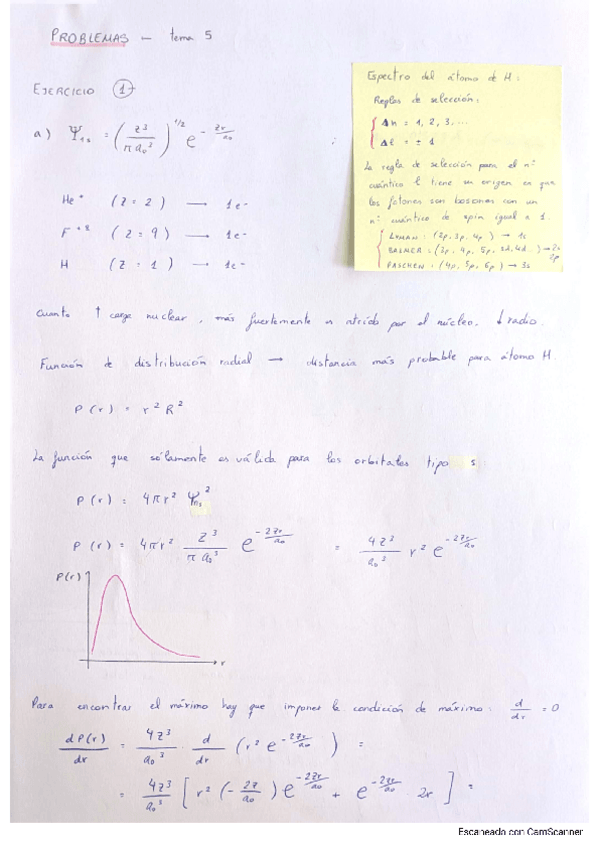 PROBLEMAS - tema 5
EJERCICIO 1
a) Ψ1s = (Z³/πa₀³)^1/2 e^-Zr/a₀
He⁺ (Z = 2) → 1e-
F⁺⁸ (Z = 9) → 1e-
H (Z = 1) → 1e-
Espectro del átomo de H:
Reglas de selección:
Δn = 1, 2, 3, ...
Δl = ± 1
La regla de selección para el nº
cuántico l tiene su origen en que
los fotones son bosones con un
nº cuántico de spin igual a 1.
LYMAN: (2p, 3p, 4p) → 1s
BALMER: (3p, 4p, 5p, 3d, 4d..) → 2s 2p
PASCHEN: (4p, 5p, 6p) → 3s
Cuanto ↑ carga nuclear, más fuertemente es atraído por el núcleo. ↓ radio.
Función de distribución radial → distancia más probable para átomo H.
P(r) = r² R²
La función que sólamente es válida para los orbitales tipo s:
P(r) = 4πr² Ψns²
P(r) = 4πr² Z³/πa₀³ e^-2Zr/a₀ = 4Z³/a₀³ r² e^-2Zr/a₀
P(r)
r
Para encontrar el máximo hay que imponer la condición de máximo: d/dr = 0
dP(r)/dr = 4Z³/a₀³ · d/dr (r² e^-2Zr/a₀) =
= 4Z³/a₀³ [r² (-2Z/a₀) e^-2Zr/a₀ + e^-2Zr/a₀ 2r] =
Escaneado con CamScanner